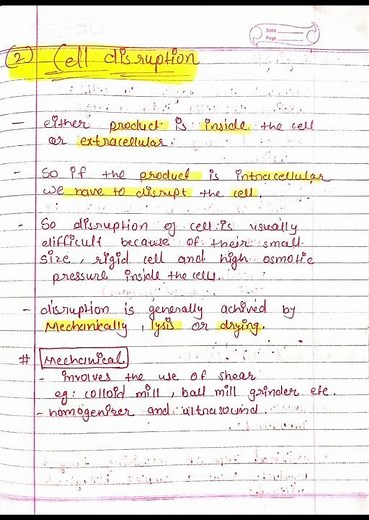 Date
Page
(2) Cell disruption
- either product is inside the cell
or extracellular.
- So if the product is intracellular
we have to disrupt the cell.
- So disruption of cell is usually
difficult because of their small
size, rigid cell and high osmotic
pressure inside the cell.
- disruption is generally achived by
Mechanically, lysis or drying.
# Mechanical
- involves the use of shear
eg: colloid mill, ball mill grinder etc.
- homogenizer and ultrasound.